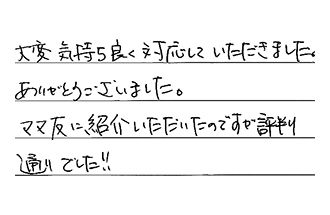 大変気持ち良く対応していただきました。
ありがとうございました。
ママ友に紹介いただいたのですが評判
通りでした!!